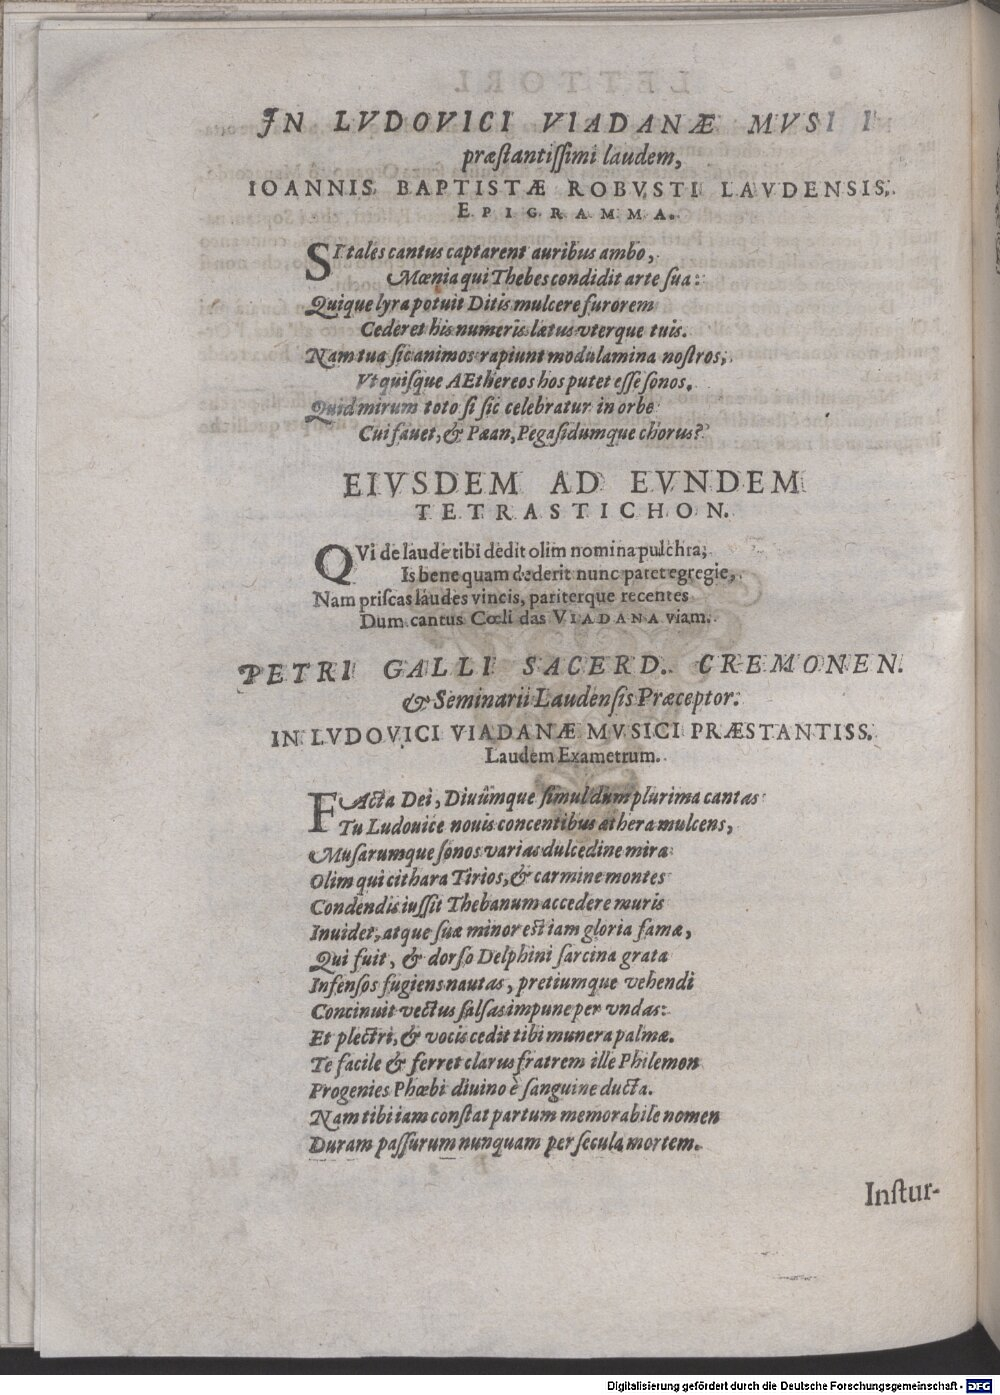 IN LVDOVICI VIADANÆ MVSI I
præſtantiſſimi laudem,
IOANNIS BAPTISTÆ ROBVSTI LAVDENSIS,
EPIGRAMMA.
SI tales cantus captarent auribus ambo,
Mœnia qui Thebes condidit arte ſua:
Quique lyra potuit Ditis mulcere furorem
Cederet his numeris lætus vterque tuis.
Nam tua ſic animos rapiunt modulamina noſtros,
Vt quiſque AEthereos hos putet eſſe ſonos.
Quid mirum toto ſi ſic celebratur in orbe
Cui fauet, & Pæan, Pegaſidumque chorus?
EIVSDEM AD EVNDEM
TETRASTICHON.
QVi de laude tibi dedit olim nomina pulchra;
Is bene quam dederit nunc patet egregie,
Nam priſcas laudes vincis, pariterque recentes
Dum cantus Cœli das VIADANA viam.
PETRI GALLI SACERD. CREMONEN.
& Seminarii Laudenſis Præceptor.
IN LVDOVICI VIADANÆ MVSICI PRÆSTANTISS.
Laudem Exametrum.
FActa Dei, Diuûmque ſimul dum plurima cantas
Tu Ludouice nouis concentibus æthera mulcens,
Muſarumque ſonos varias dulcedine mira
Olim qui cithara Tirios, & carmine montes
Condendis iuſſit Thebanum accedere muris
Inuidet, atque ſuæ minor eſt iam gloria famæ,
Qui fuit, & dorſo Delphini ſarcina grata
Infenſos fugiens nautas, pretiumque vehendi
Concinuit vectus ſalſas impune per vndas:
Et plectri, & vocis cedit tibi munera palmæ.
Te facile & ferret clarus fratrem ille Philemon
Progenies Phœbi diuino è ſanguine ducta.
Nam tibi iam conſtat partum memorabile nomen
Duram paſſurum nunquam per ſecula mortem.
Inſtur-
Digitalisierung gefördert durch die Deutsche Forschungsgemeinschaft - DFG